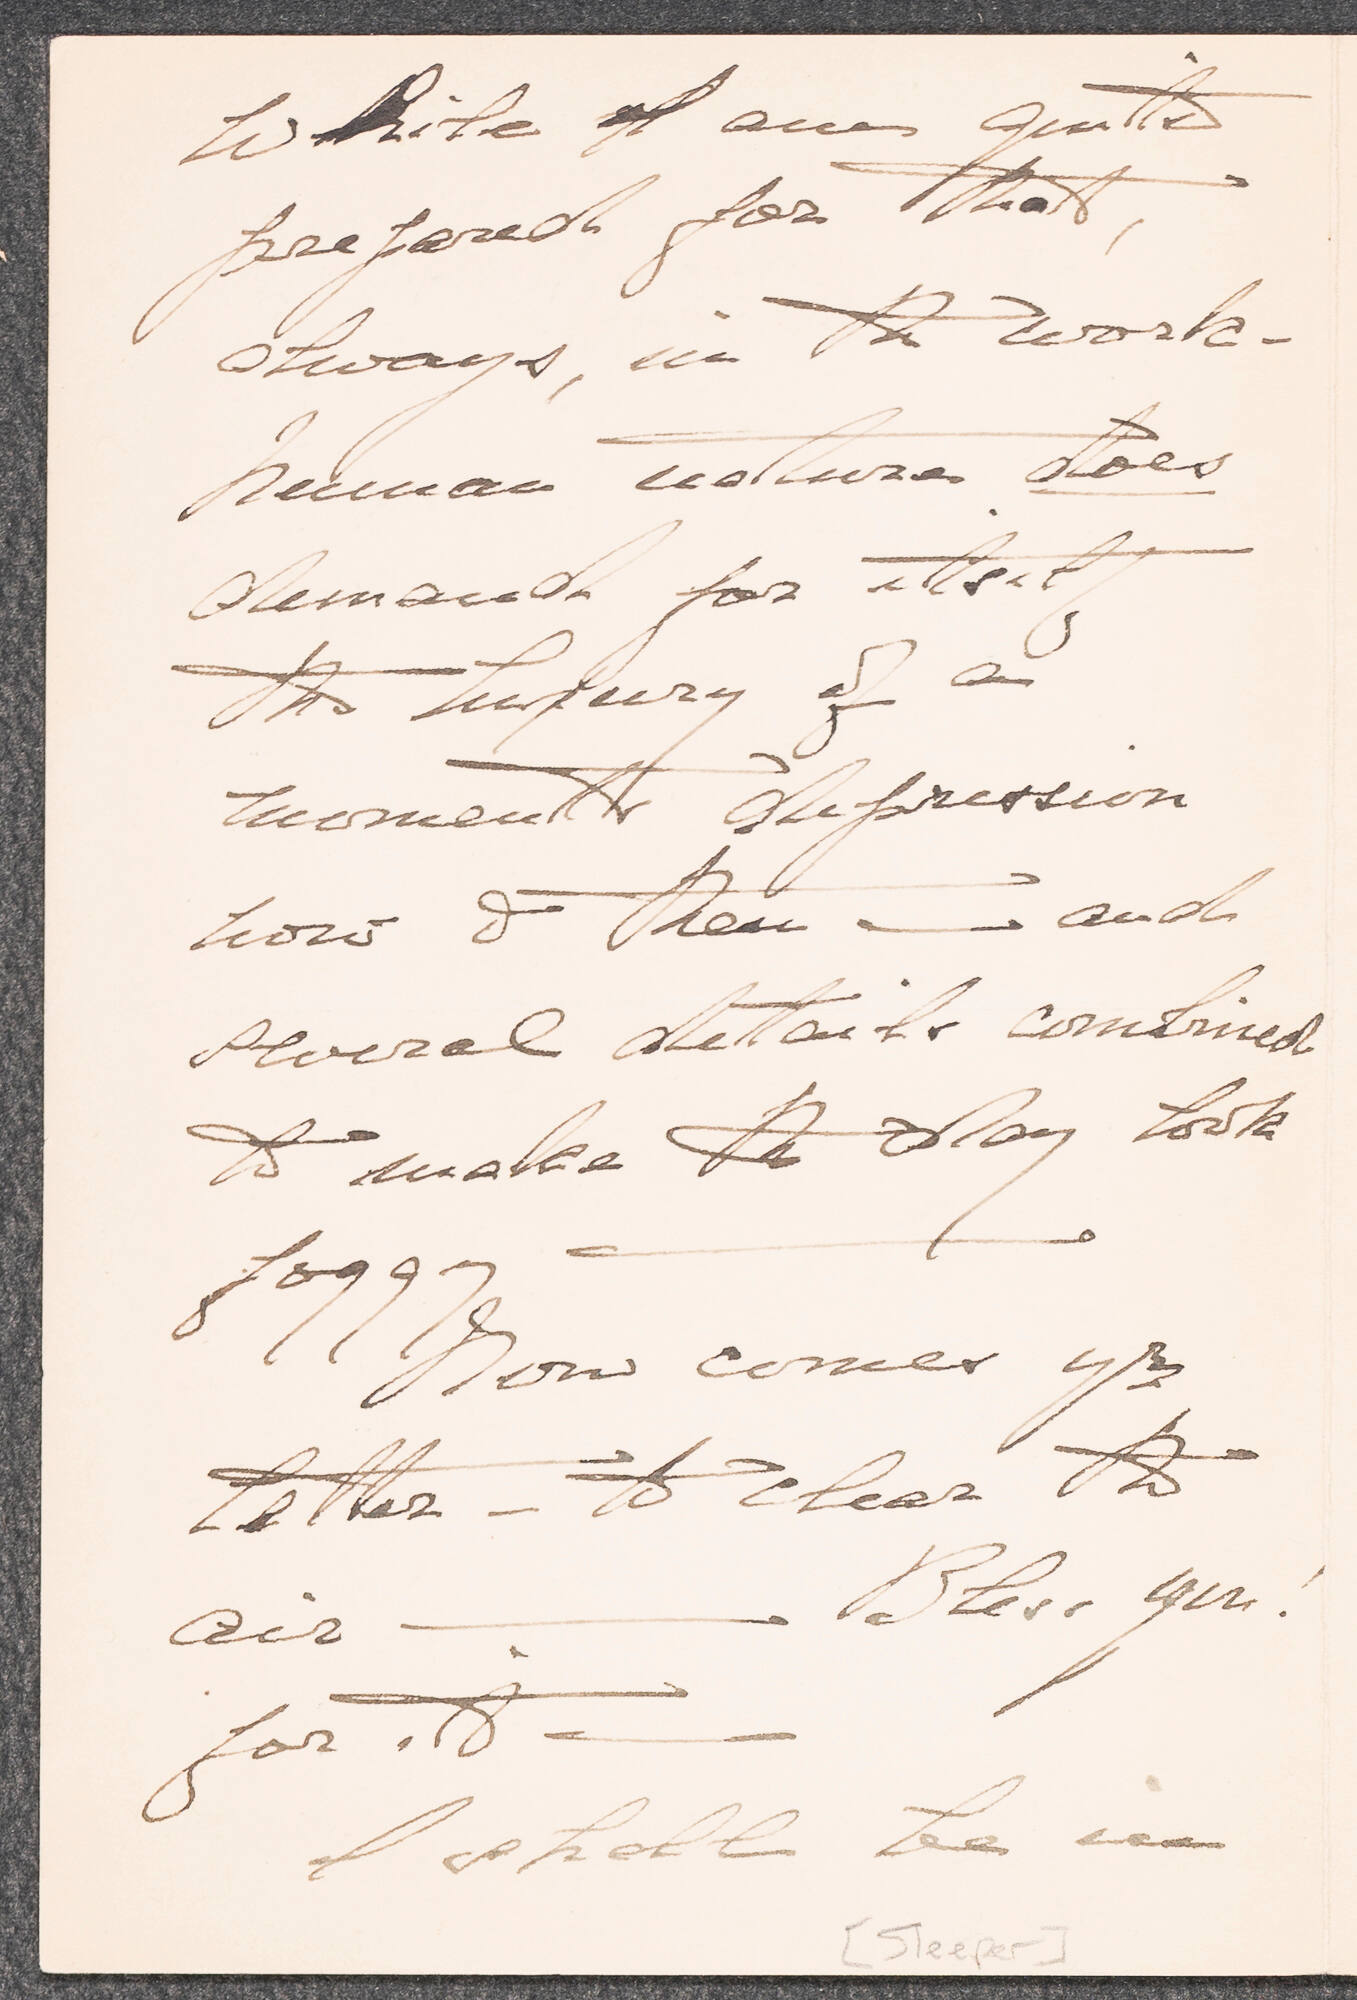 While I am quite
prepared for that,
always, in the work-
human nature does
demand for itself
the luxury of a
moment's depression
now & then — and
several details combined
to make the day look
foggy —
Now comes yr
letter - to clear the
air — Bless you!
for it —
I shall be in
[Sleeper]